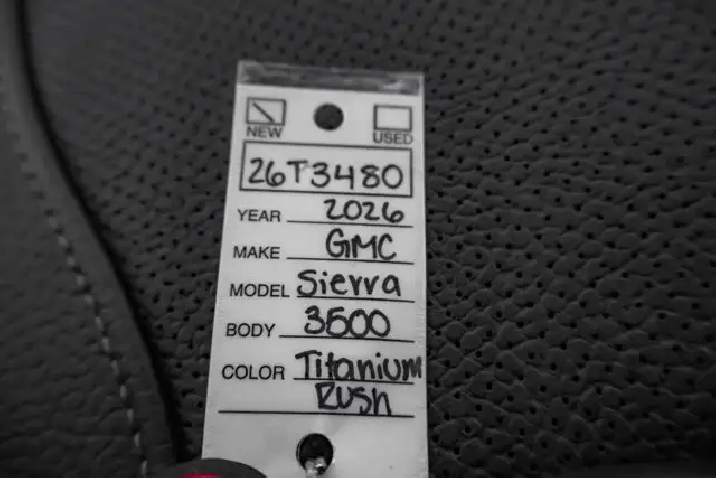 NEW USED
26T3480
YEAR 2026
MAKE GMC
MODEL Sierra
BODY 3500
COLOR Titanium
Rush